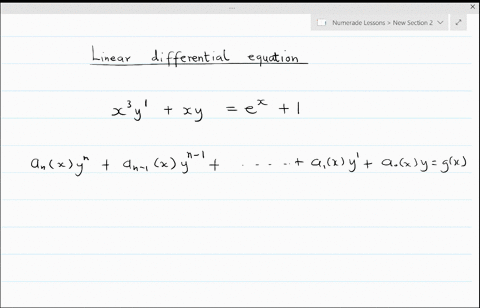 Numerade Lessons > New Section 2
Linear differential equation
x³y' + xy = eˣ + 1
aₙ(x)yⁿ + aₙ₋₁(x)yⁿ⁻¹ + ..... + a₁(x)y' + a₀(x)y = g(x)